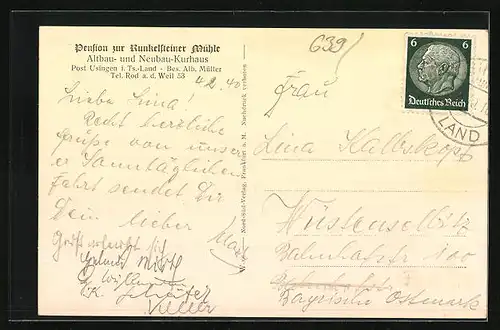 Pension zur Runkelsteiner Mühle
Altbau- und Neubau-Kurhaus
Post Usingen i. Ts.-Land - Bes. Alb. Müller
Tel. Rod a. d. Weil 53
4.2.40
Liebe Lina!
Recht herzliche
Grüße von unser
er Sonntäglichen
Fahrt sendet Dir
Dein lieber
Nord-Süd-Verlag, Frankfurt a. M. Nachdruck verboten
639
6 6
Deutsches Reich
LAND
Frau
Lina Kalbskopf
Wüstenselbitz
Bahnhofstr 100
Bayrische Ostmark